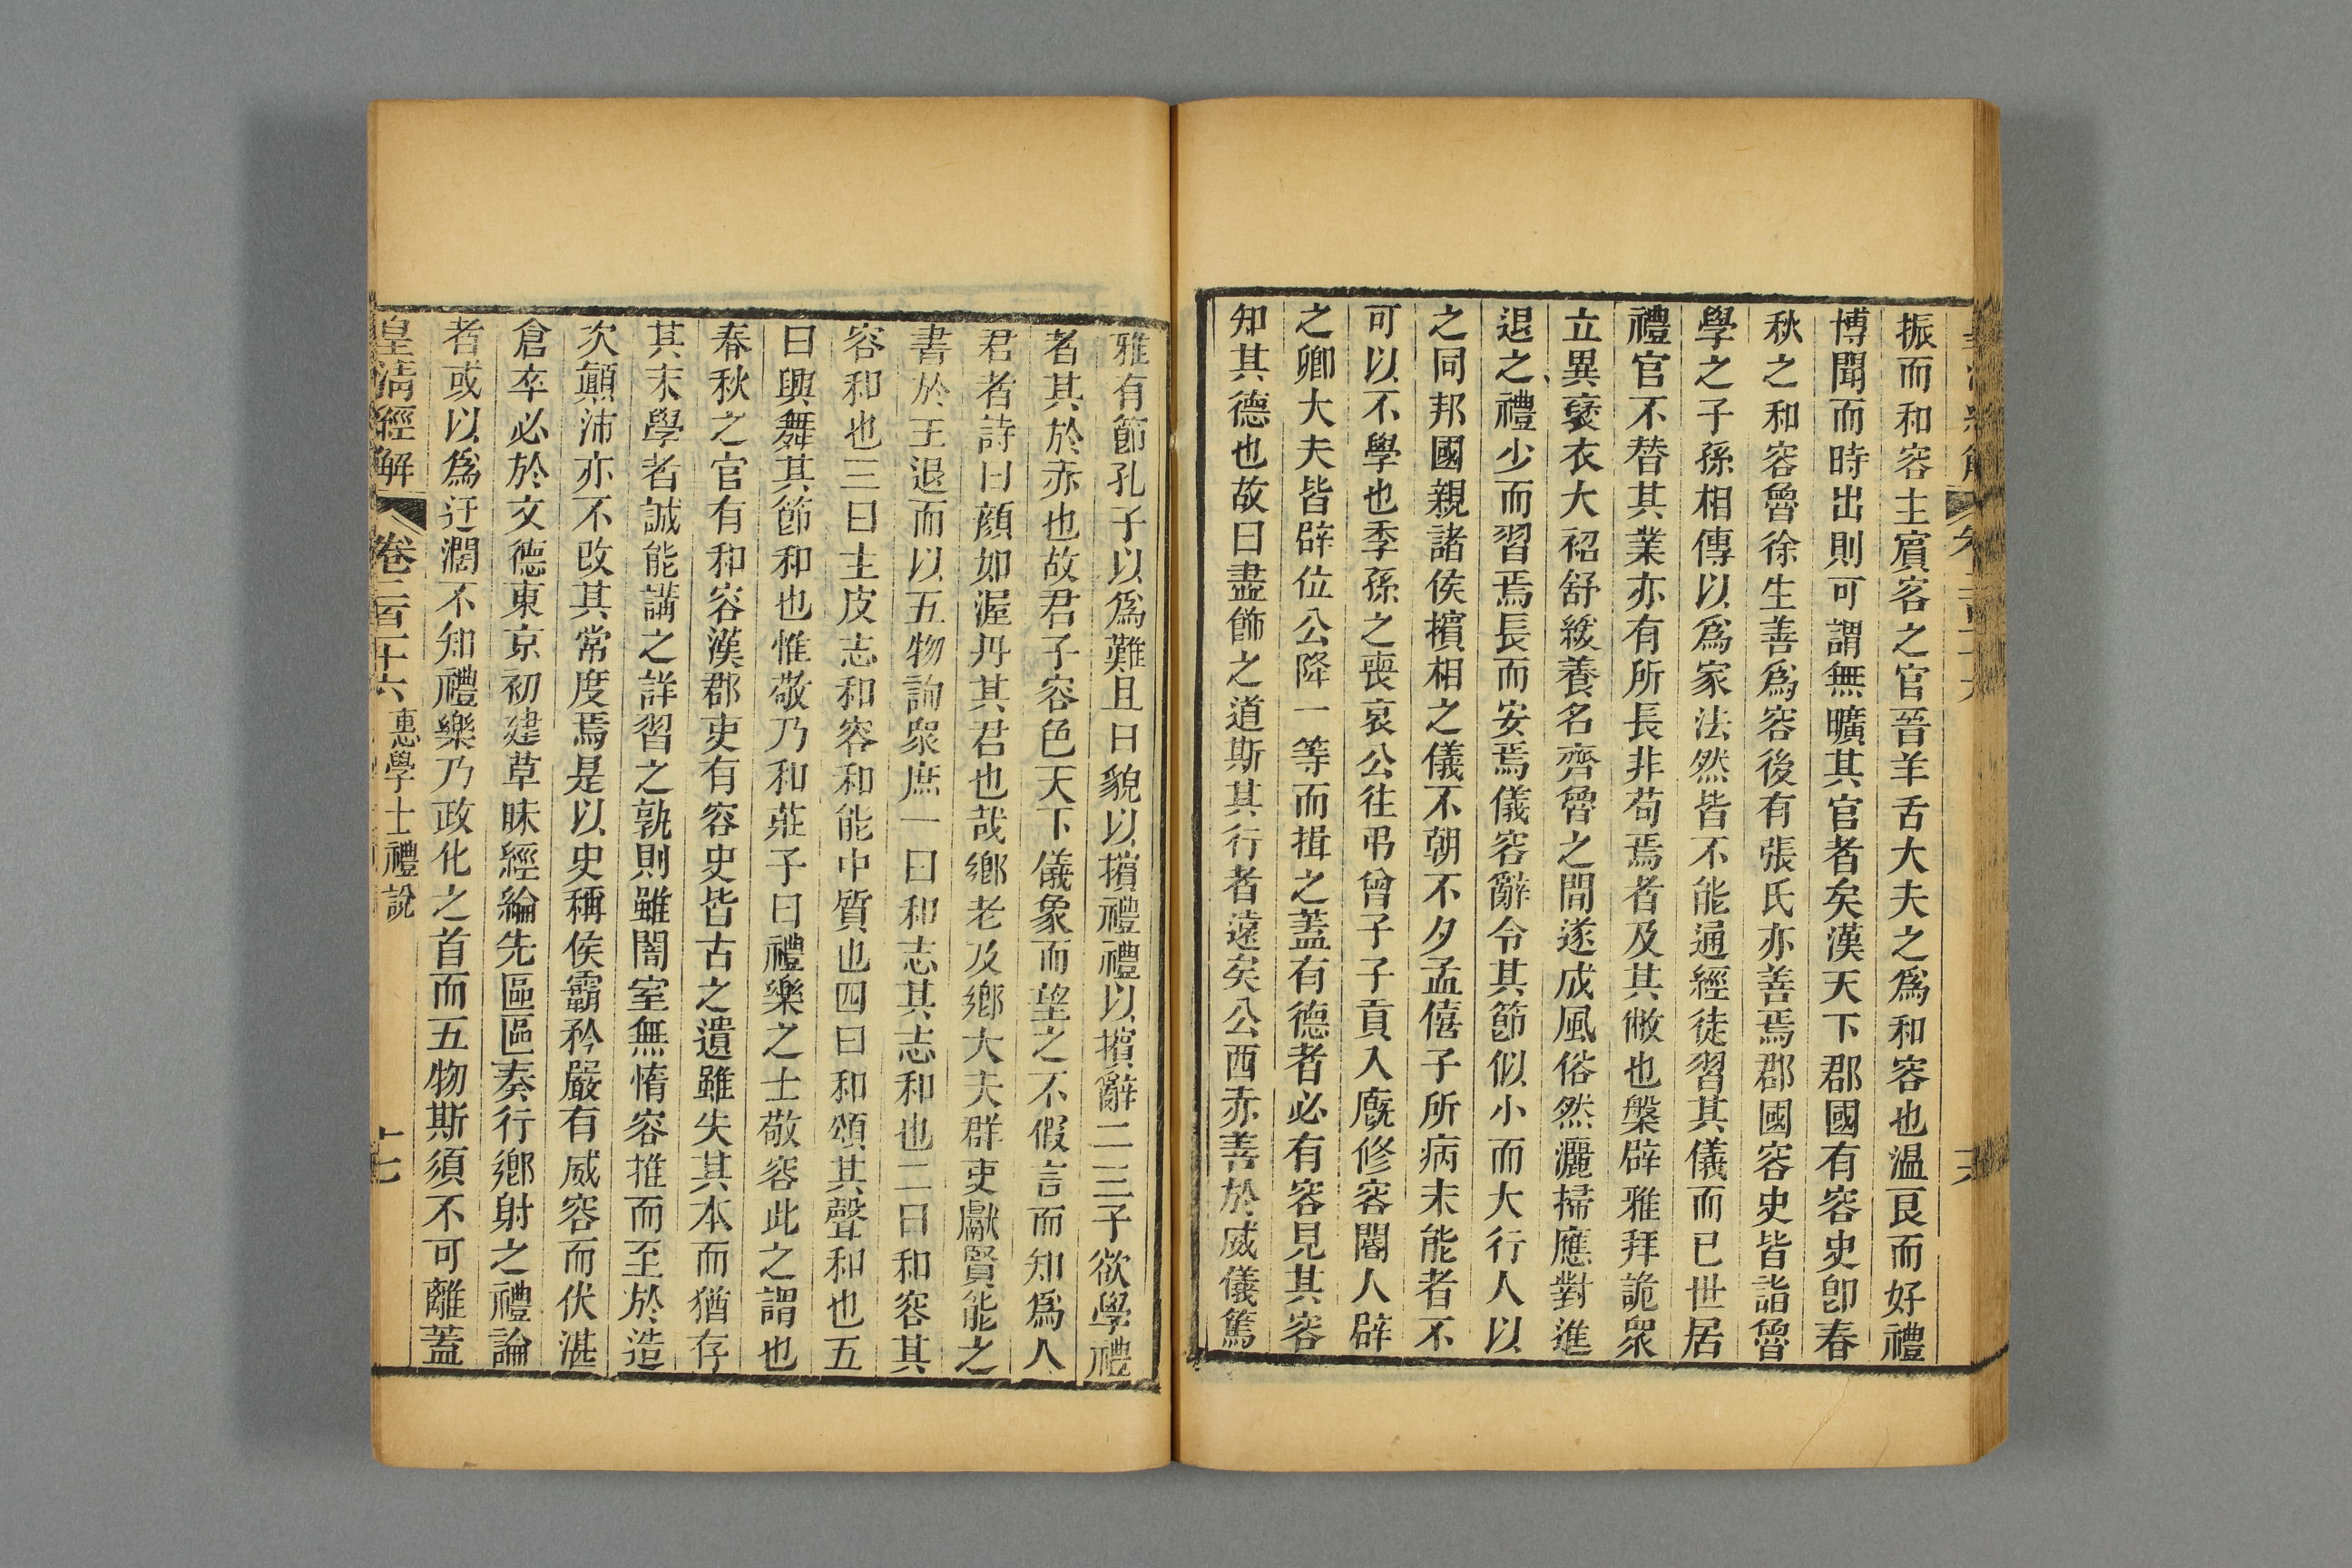 振而和容主賔客之官晉羊舌大夫之爲和容也温良而好禮
博聞而時出則可謂無曠其官者矣漢天下郡國有容史卽春
秋之和容魯徐生善爲容後有張氏亦善焉郡國容史皆詣魯
學之子孫相傳以爲家法然皆不能通經徒習其儀而已世居
禮官不替其業亦有所長非苟焉者及其敝也槃辟雅拜詭衆
立異襃衣大袑舒緩養名齊魯之間遂成風俗然灑掃應對進
退之禮少而習焉長而安焉儀容辭令其節似小而大行人以
之同邦國親諸侯擯相之儀不朝不夕孟僖子所病未能者不
可以不學也季孫之喪哀公往弔曾子子貢入廐修容閽人辟
之卿大夫皆辟位公降一等而揖之蓋有德者必有容見其容
知其德也故曰盡飾之道斯其行者遠矣公西赤善於威儀篤
雅有節孔子以爲難且曰貌以擯禮禮以擯辭二三子欲學禮
者其於赤也故君子容色天下儀象而望之不假言而知爲人
君者詩曰顔如渥丹其君也哉鄉老及鄉大夫群吏獻賢能之
書於王退而以五物詢衆庶一曰和志其志和也二曰和容其
容和也三曰主皮志和容和能中質也四曰和頌其聲和也五
曰興舞其節和也惟敬乃和莊子曰禮樂之士敬容此之謂也
春秋之官有和容漢郡吏有容史皆古之遺雖失其本而猶存
其末學者誠能講之詳習之孰則雖闇室無惰容推而至於造
次顛沛亦不改其常度焉是以史稱侯霸矜嚴有威容而伏湛
倉卒必於文德東京初建草昧經綸先區區奏行鄉射之禮論
者或以爲迂濶不知禮樂乃政化之首而五物斯須不可離蓋
皇清經解 卷二百十六 惠學士禮說 十七